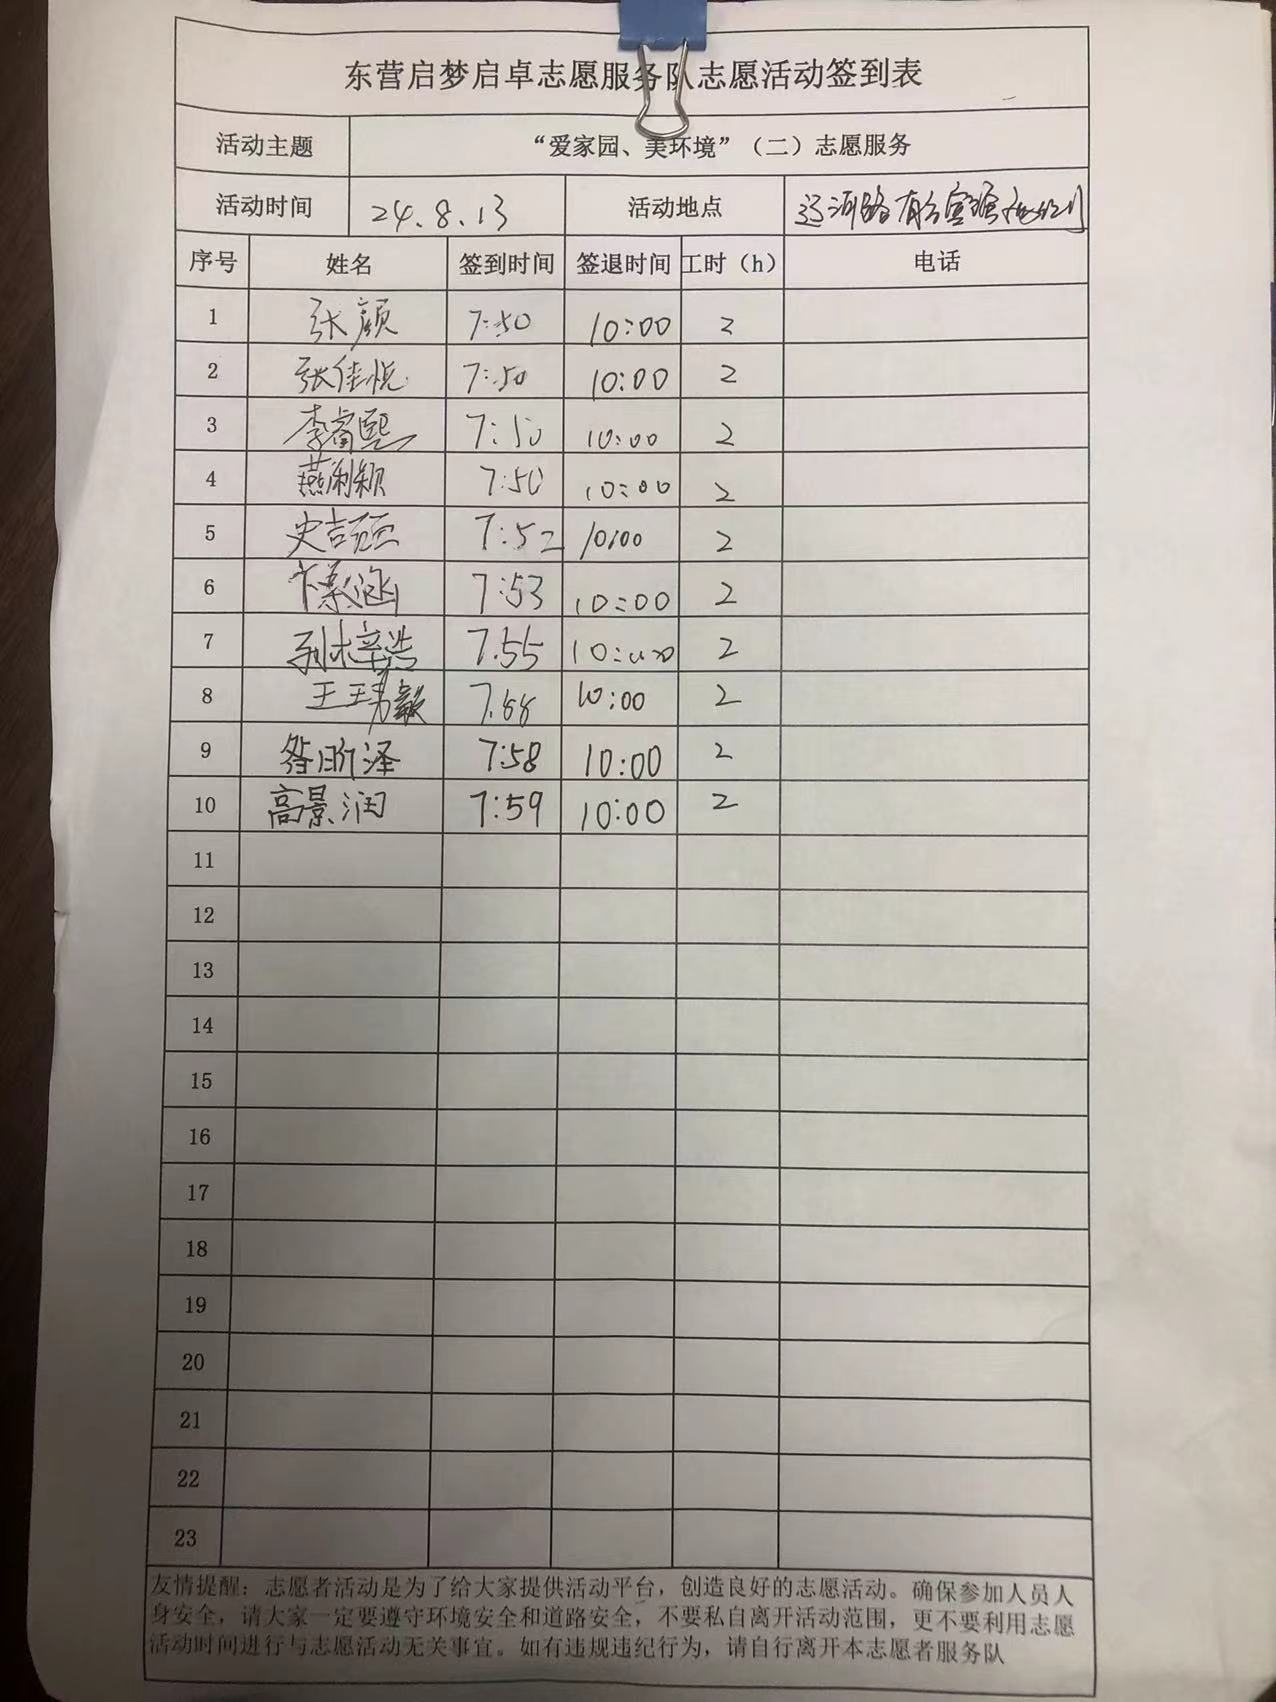 东营启梦启卓志愿服务队志愿活动签到表
活动主题 “爱家园、美环境”（二）志愿服务
活动时间 24.8.13 活动地点
序号 姓名 签到时间 签退时间 工时（h） 电话
1 张颜 7:50 10:00 2
2 张佳悦 7:50 10:00 2
3 李睿熙 7:50 10:00 2
4 燕俐颖 7:50 10:00 2
5 史吉 7:52 10:00 2
6 卞 涵 7:53 10:00 2
7 孙梓浩 7.55 10:00 2
8 王 毅 7. 10:00 2
9 昝 泽 7:58 10:00 2
10 高景润 7:59 10:00 2
11
12
13
14
15
16
17
18
19
20
21
22
23
友情提醒：志愿者活动是为了给大家提供活动平台，创造良好的志愿活动。确保参加人员人
身安全，请大家一定要遵守环境安全和道路安全，不要私自离开活动范围，更不要利用志愿
活动时间进行与志愿活动无关事宜。如有违规违纪行为，请自行离开本志愿者服务队